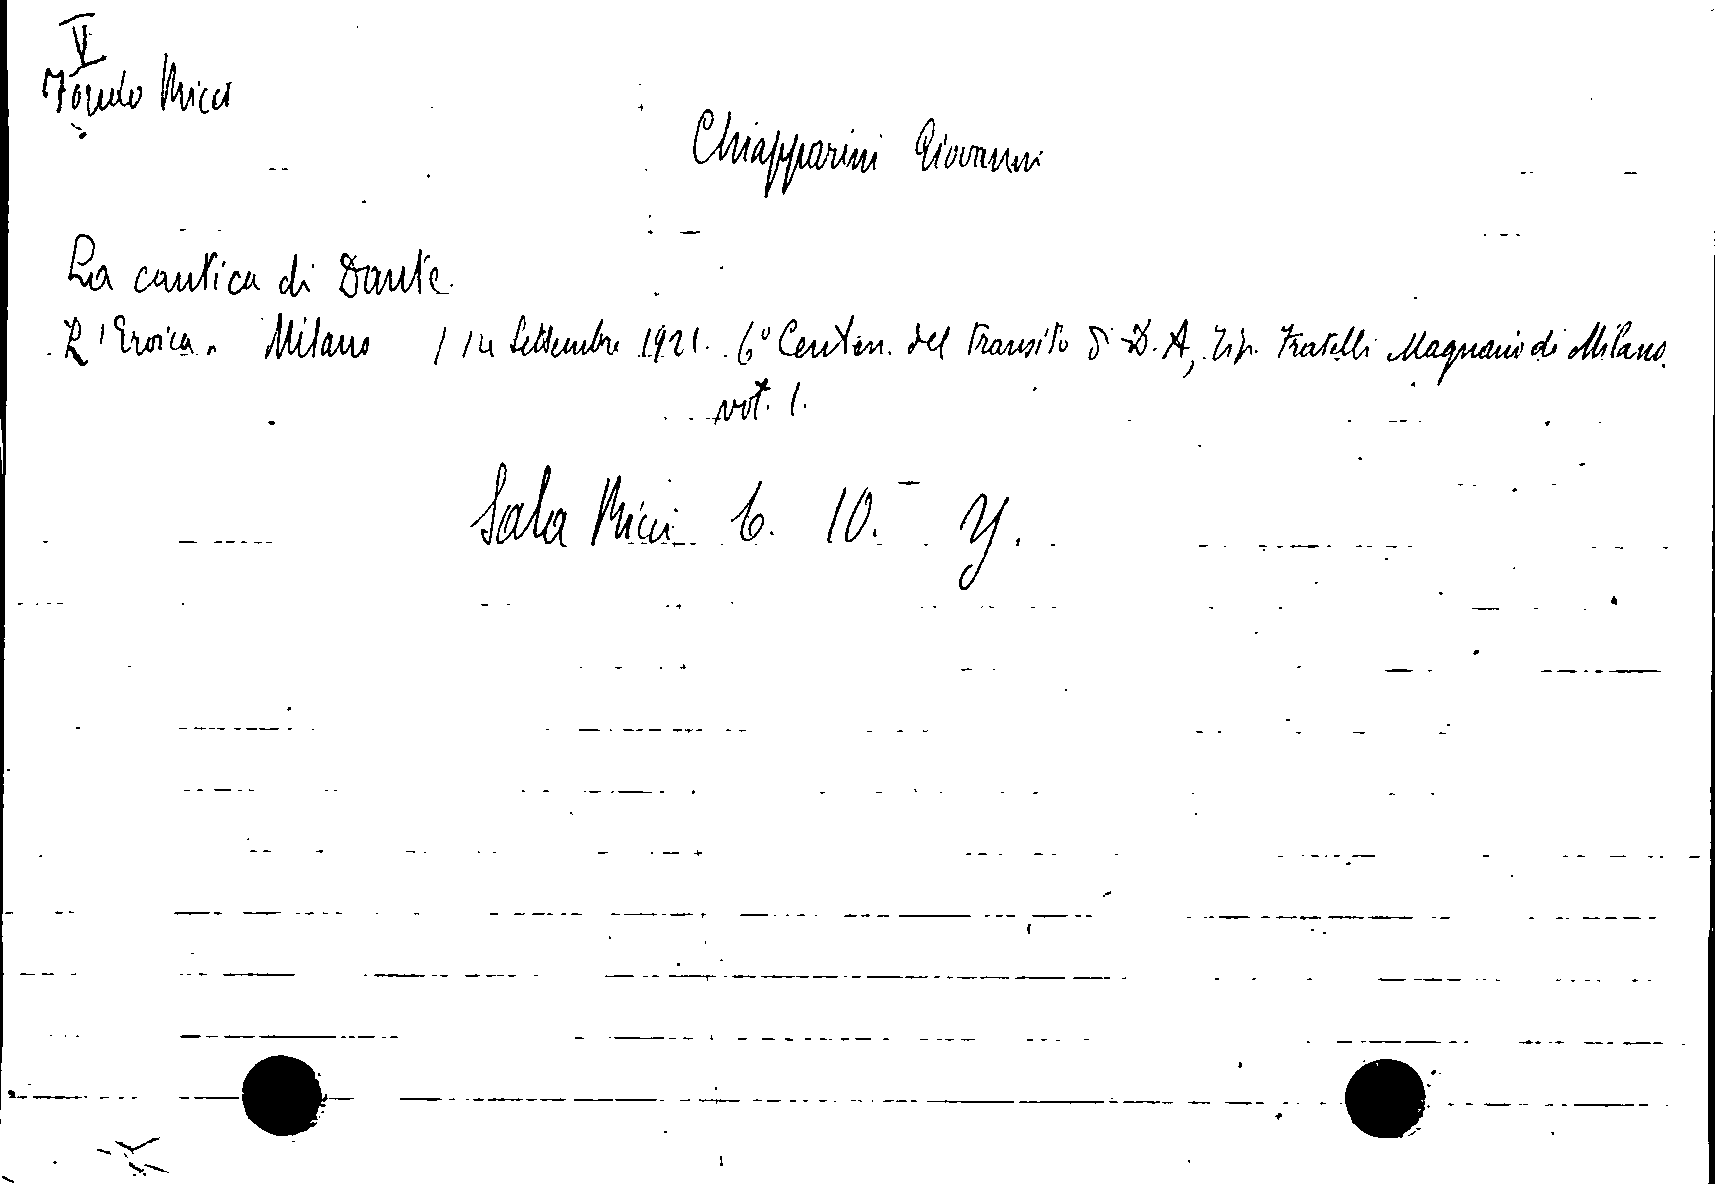 V
Fondo Ricci
Chiapparini Giovanni
La cantica di Dante.
L'Eroica. Milano / 14 Settembre 1921. 6° Centen. del transito di D. A, Tip. Fratelli Magnani di Milano.
vol. 1.
Sala Ricci 6. 10. Y.